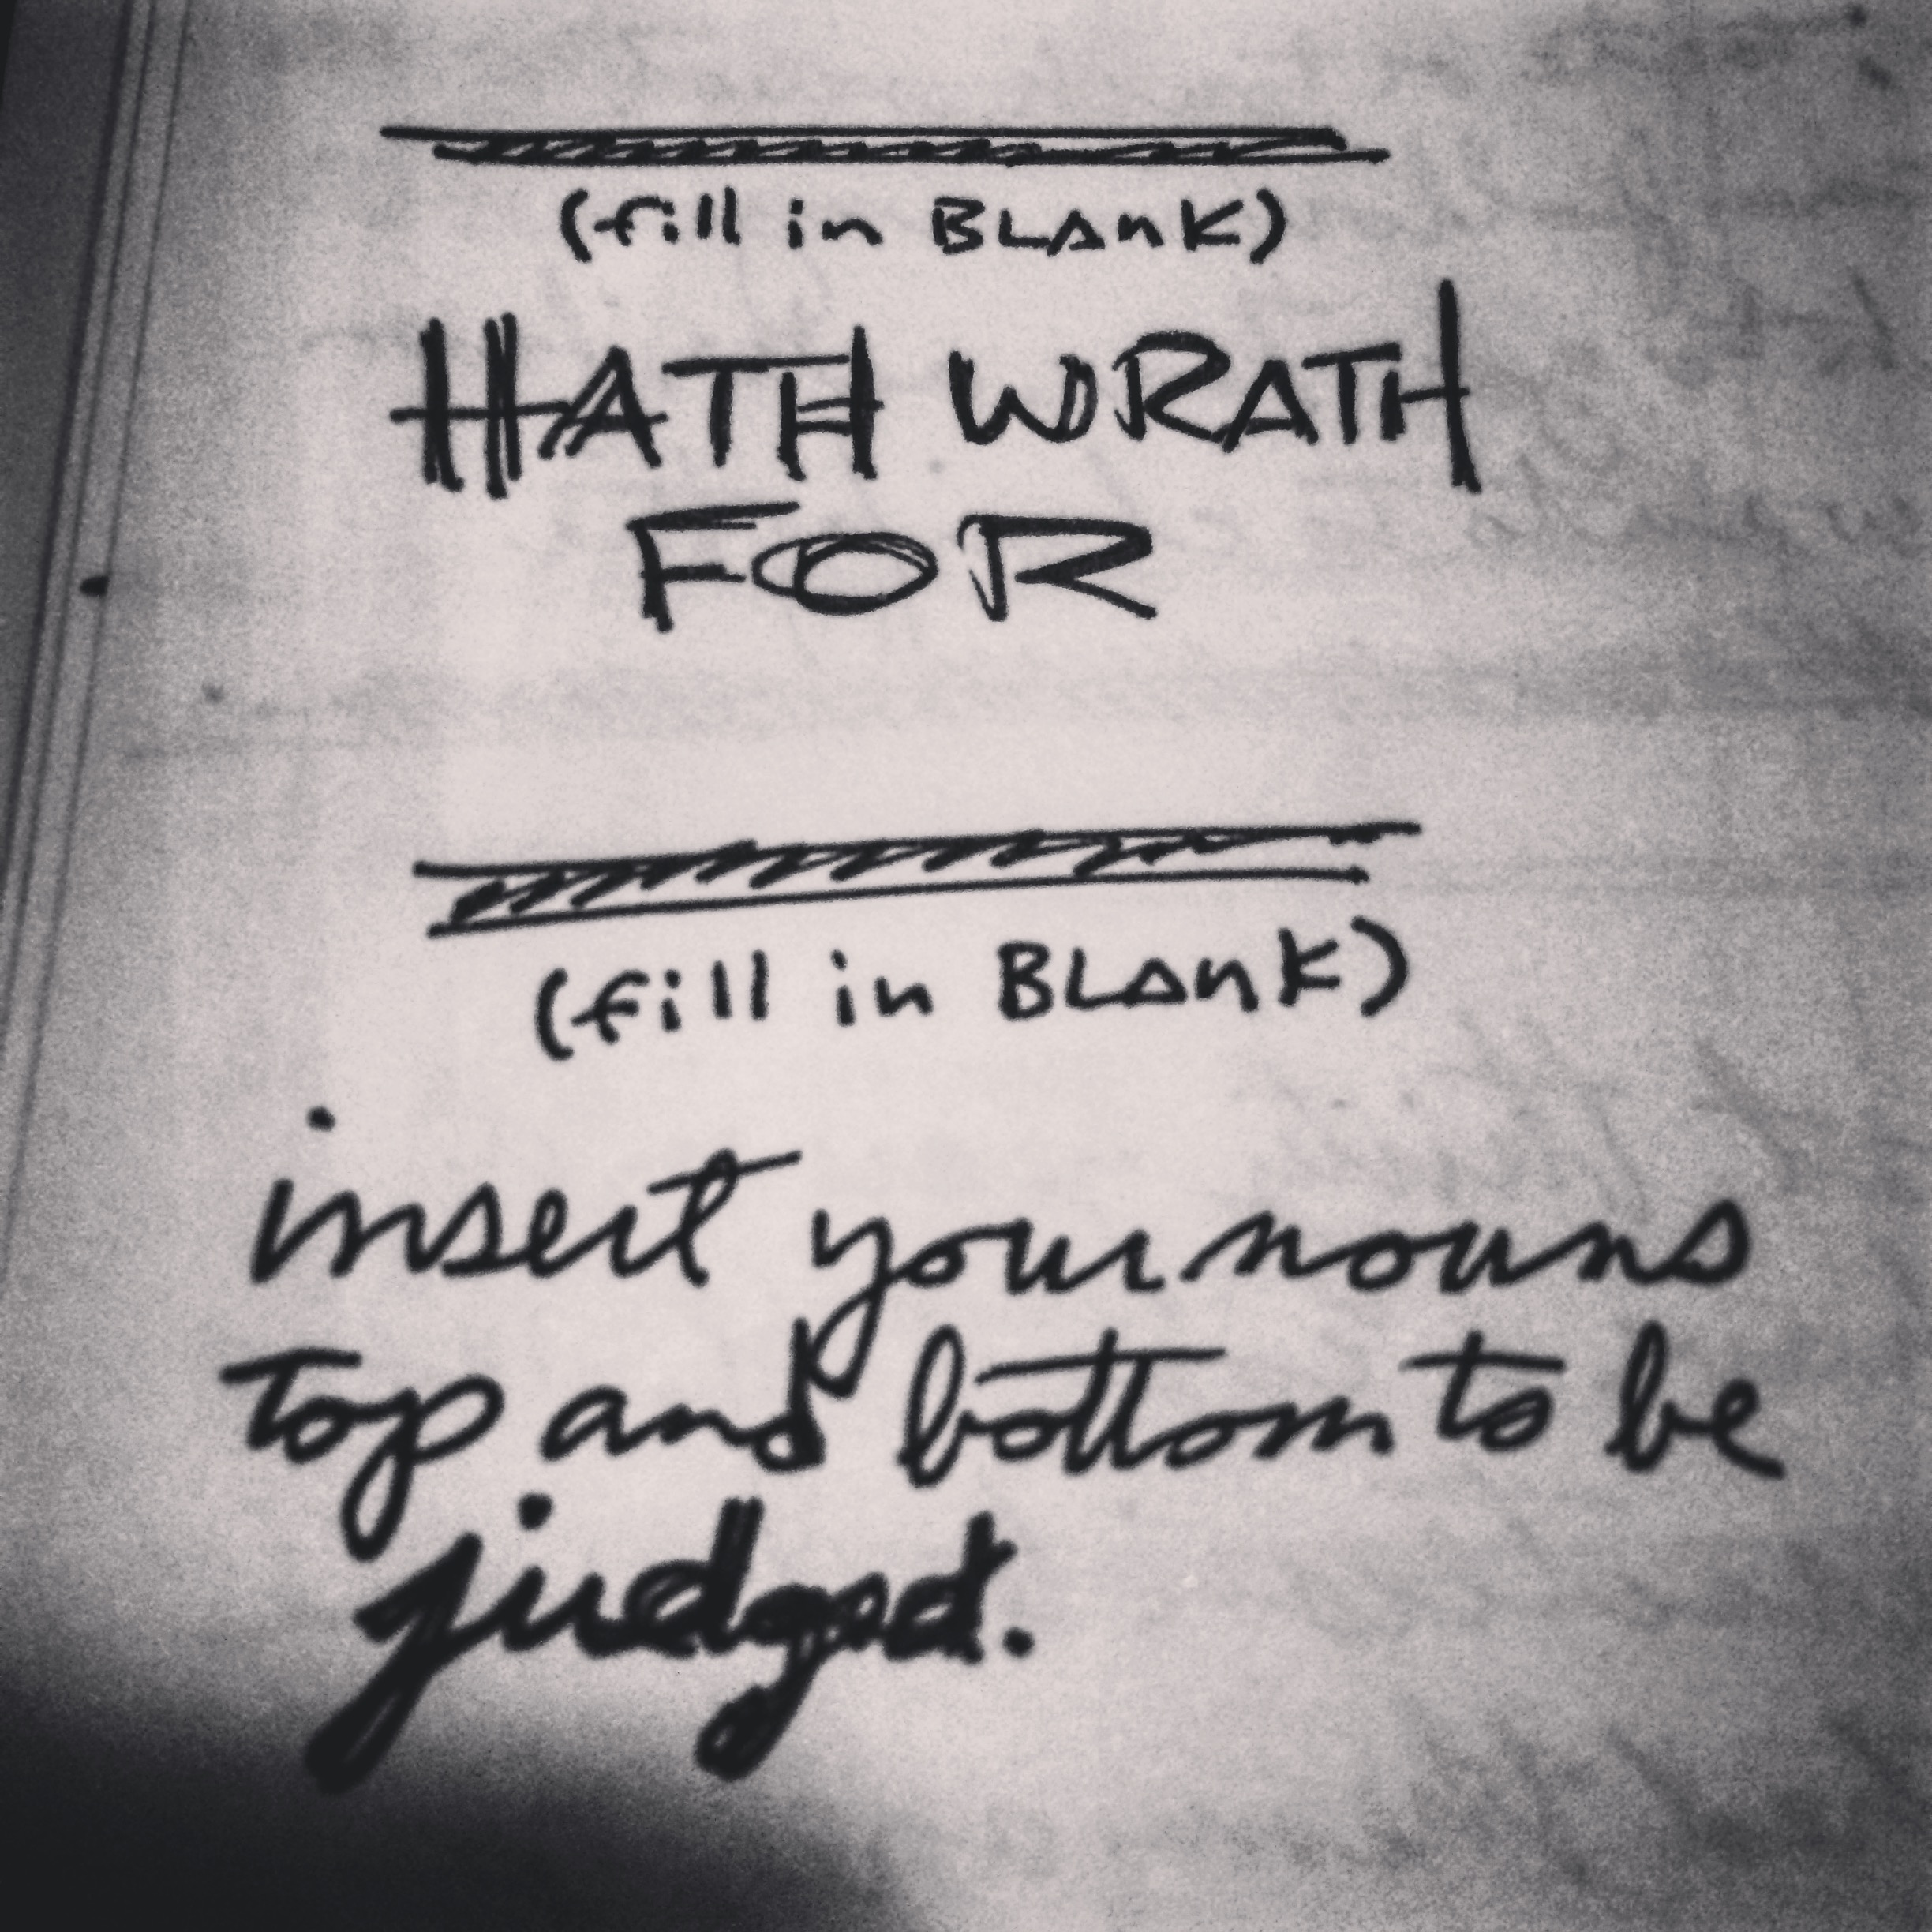 (fill in BLAnK)
HATH WRATH
FOR
(fill in BLAnK)
insert your nouns
top and bottom to be
judged.